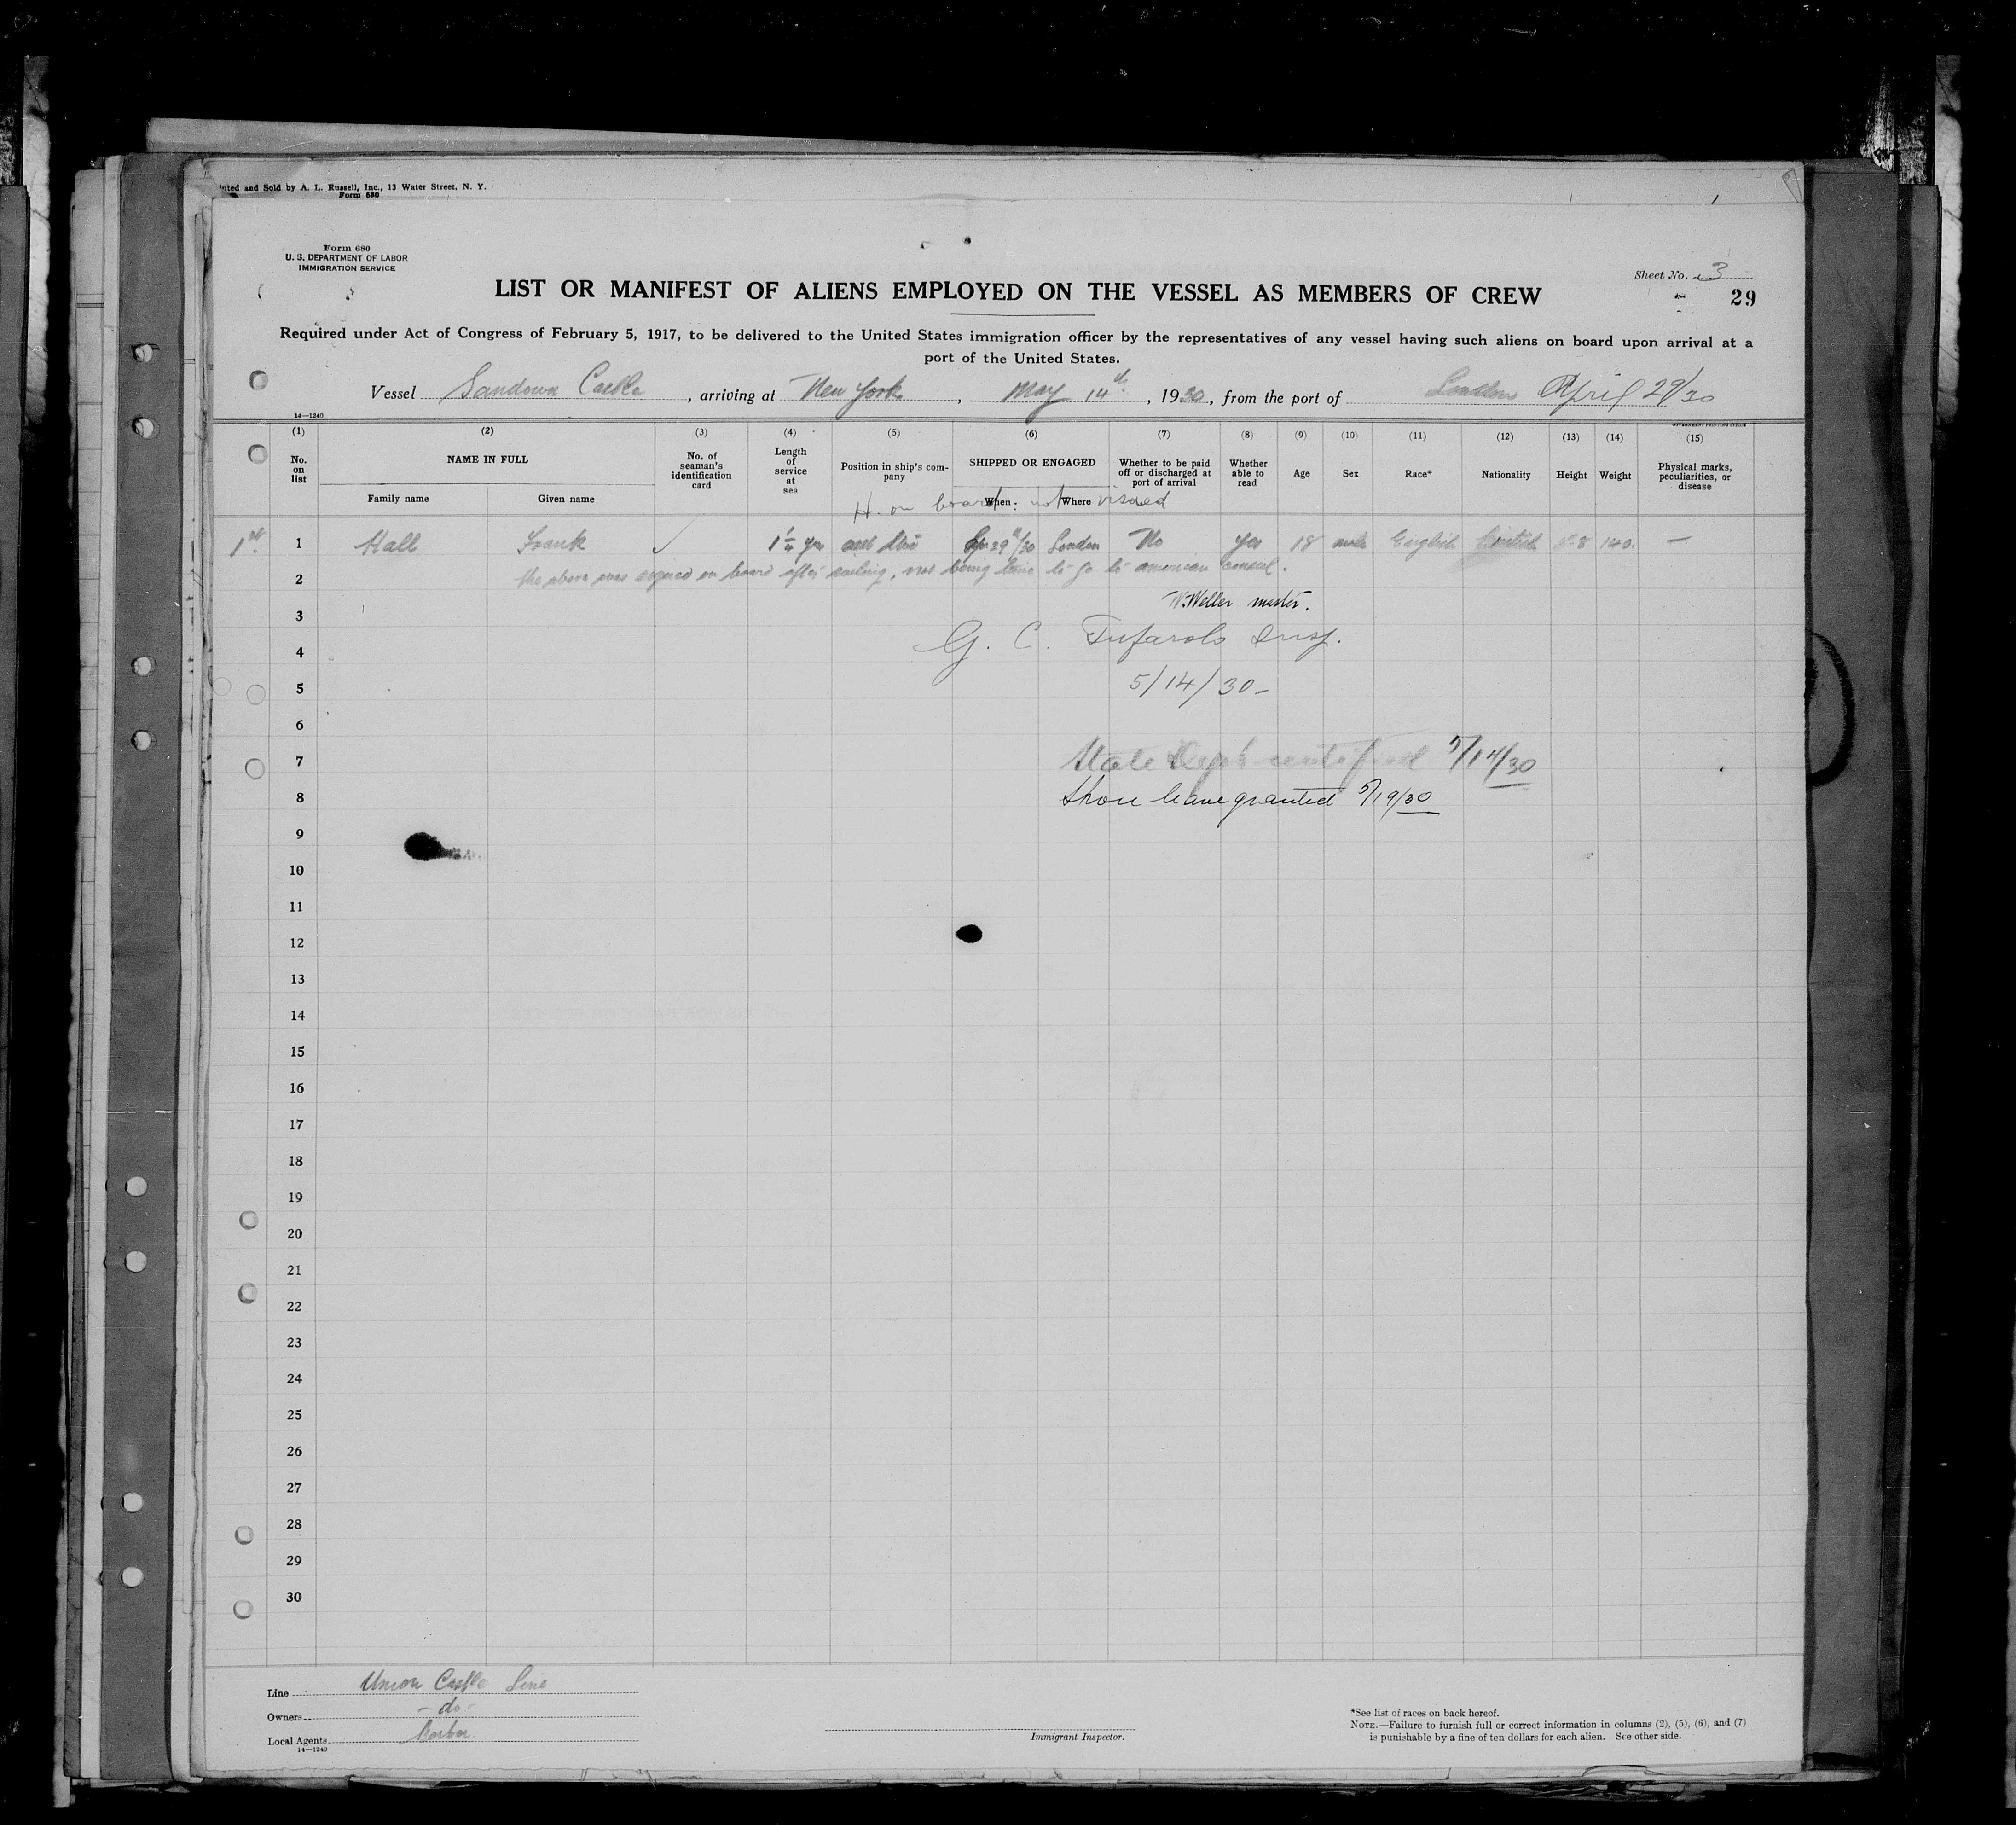 nted and Sold by A. L. Russell, Inc., 13 Water Street, N. Y.
Form 680
Form 680
U. S. DEPARTMENT OF LABOR
IMMIGRATION SERVICE
Sheet No. 3
29
LIST OR MANIFEST OF ALIENS EMPLOYED ON THE VESSEL AS MEMBERS OF CREW
Required under Act of Congress of February 5, 1917, to be delivered to the United States immigration officer by the representatives of any vessel having such aliens on board upon arrival at a
port of the United States.
Vessel Sandown Castle, arriving at New York, May 14th, 1930, from the port of London April 29/30
14—1240
GOVERNMENT PRINTING OFFICE
(1) (2) (3) (4) (5) (6) (7) (8) (9) (10) (11) (12) (13) (14) (15)
No. on list NAME IN FULL No. of seaman's identification card Length of service at sea Position in ship's company SHIPPED OR ENGAGED Whether to be paid off or discharged at port of arrival Whether able to read Age Sex Race* Nationality Height Weight Physical marks, peculiarities, or disease
Family name Given name When Where
on board: not visaed
1st 1 Hall Frank ✓ 1 1/4 yrs asst Apr 29th/30 London No yes 18 male English British 5-8 140 —
2 the above was signed on board after sailing, not being time to go to american consul.
3 W. Weller master.
4 G. C. Tufarolo Insp.
5 5/14/30-
6
7 State Dept notified 5/14/30
8 Shore leave granted 5/19/30
9
10
11
12
13
14
15
16
17
18
19
20
21
22
23
24
25
26
27
28
29
30
Line Union Castle Line
Owners - do -
Local Agents Barber
14—1240
Immigrant Inspector.
*See list of races on back hereof.
NOTE.—Failure to furnish full or correct information in columns (2), (5), (6), and (7)
is punishable by a fine of ten dollars for each alien. See other side.